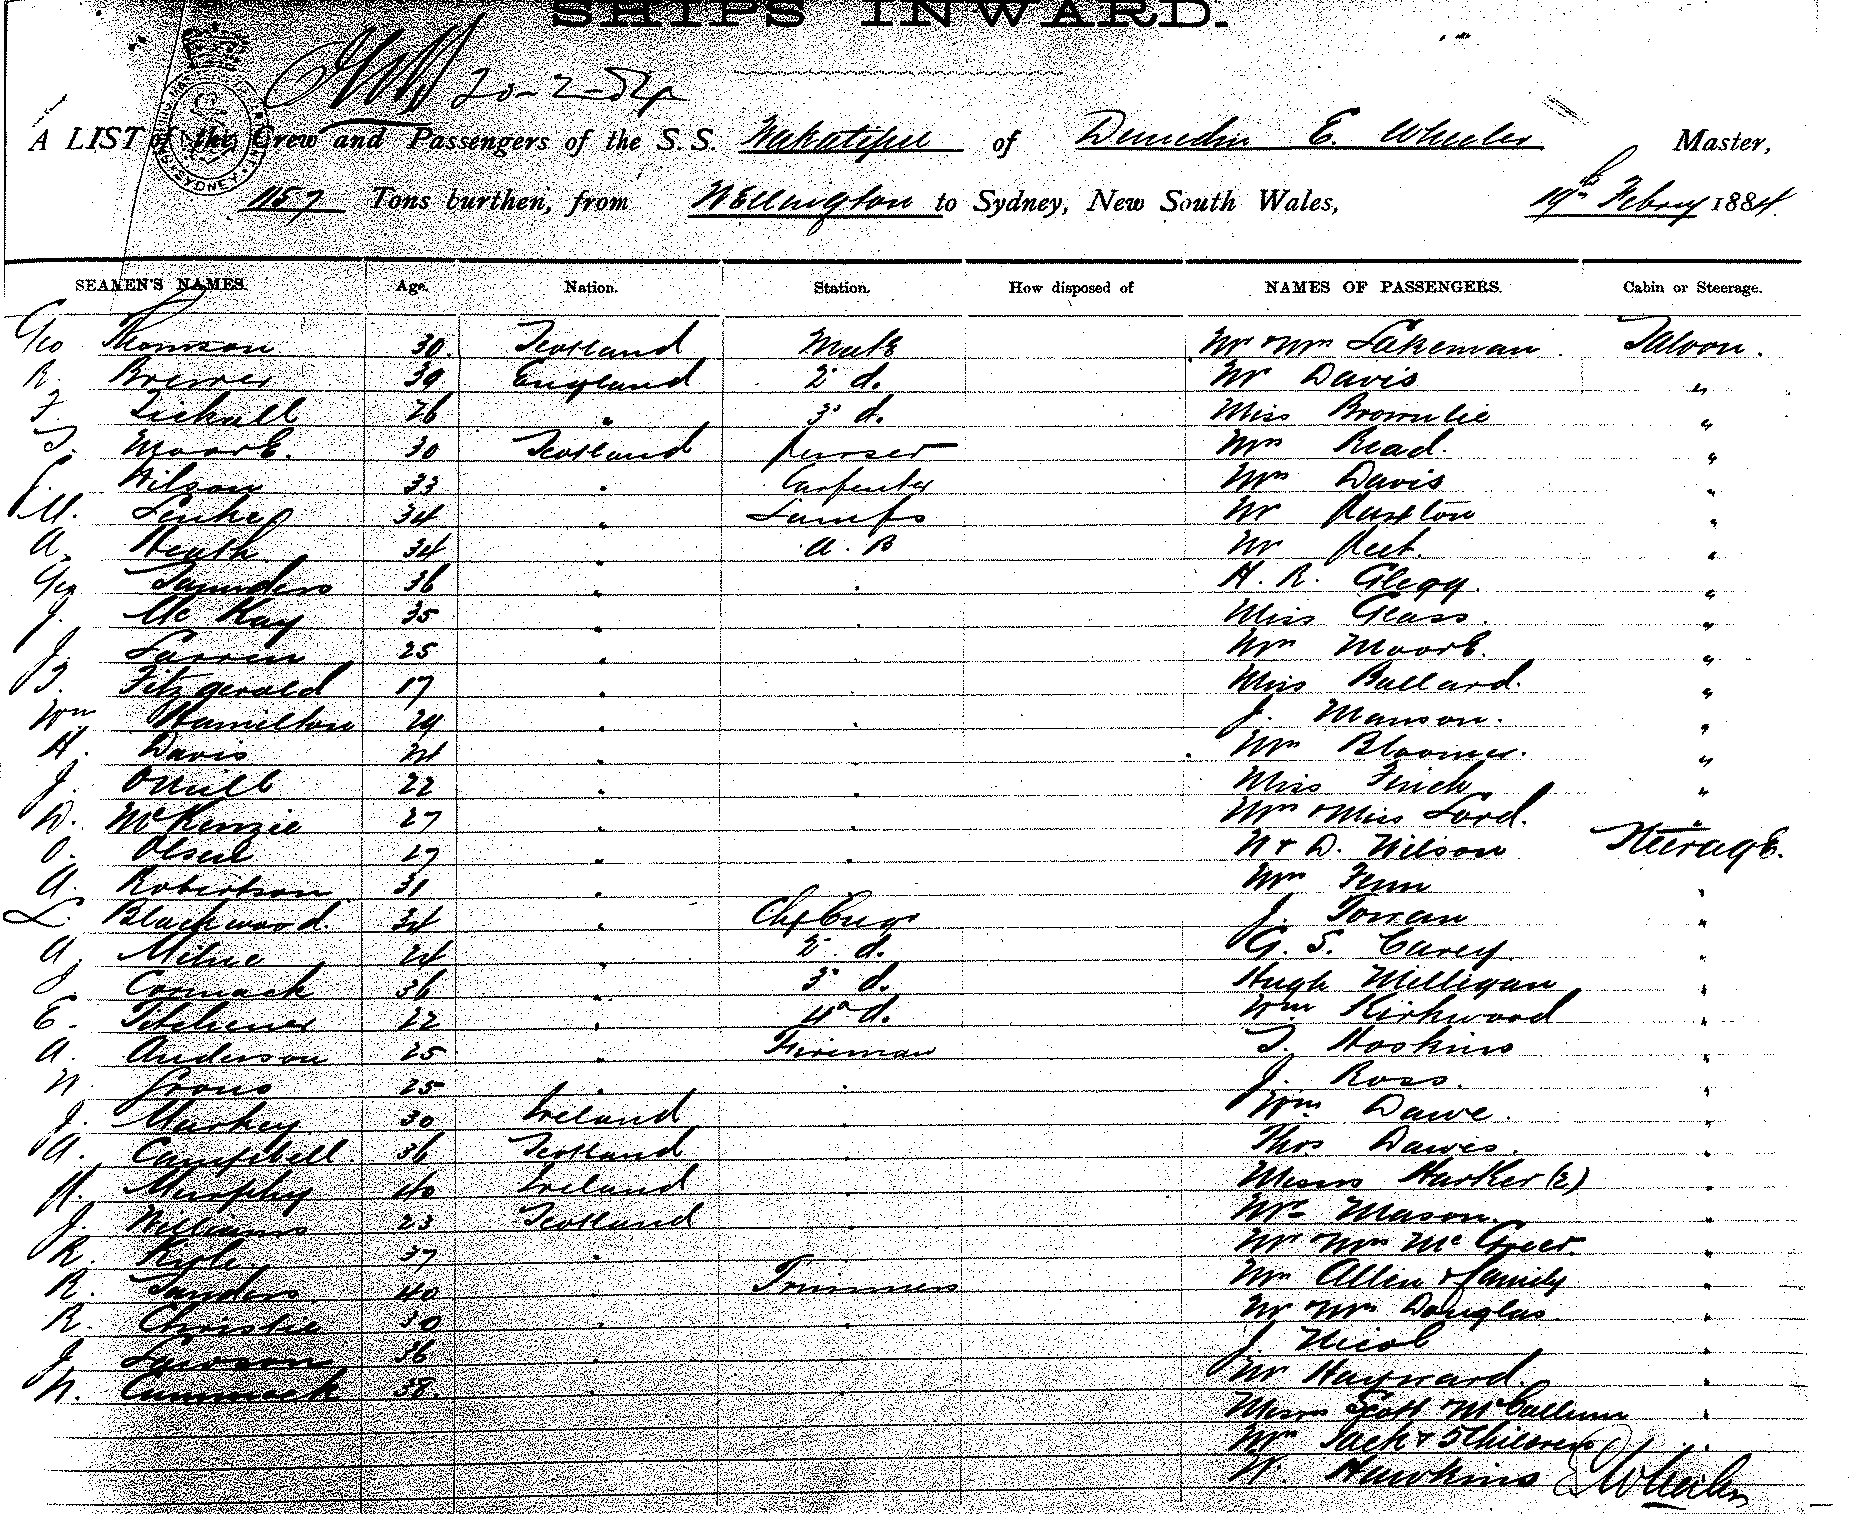 SHIPS INWARD.
20-2-84
A LIST of the Crew and Passengers of the S.S. Wakatipu of Dunedin E. Wheeler Master,
1157 Tons burthen, from Wellington to Sydney, New South Wales, 19th Febry 1884.
SEAMEN'S NAMES. Age. Nation. Station. How disposed of NAMES OF PASSENGERS. Cabin or Steerage.
Geo Thomson 30 Scotland Mate Mr & Mrs Lakeman. Saloon.
R. Brewer 39 England 2d d. Mr Davis "
F. 26 " 3d d. Miss Brownlie "
T. Moore. 30 Scotland Purser Mrs Read. "
Wilson 33 " Carpenter Mrs Davis "
M. 34 " Lamps Mr Ruxton "
A. Heath 34 " A.B Mr "
Geo Saunders 36 " . H. R. Glegg. "
J. McKay 35 " Miss Glass. "
J. 25 " Mrs Moore. "
T. Fitzgerald 17 " . Miss Bullard. "
Wm Hamilton 29 " . J. Manson. "
H. Davis 24 " . Mrs Bloomer. "
J. ONeill 22 " . Miss Finch "
D. McKenzie 27 " . Mrs & Miss Lord. "
O. Olsen 27 " . W & D. Wilson Steerage.
A. Robertson 31 " Mrs Fenn "
L. Blackwood. 34 " J. Torran "
A. Milne 24 " 2d d. G. S. Carey. "
J. Cormack 36 " 3d d. Hugh Milligan "
E. 22 " 4th d. Wm Kirkwood "
A. Anderson 25 " Fireman T. Hoskins "
N. 25 " . J. Ross. "
J. Markey 30 Ireland Wm Dawe. "
A. Campbell 36 Scotland . Thos Dawes. "
H. Murphy 40 Ireland Messrs Harker (2) "
J. Williams 23 Scotland . Mrs Mason. "
R. Kyle 37 " Mr & Mrs McGreer. "
R. Sanders 40 Trimmers Mrs Allen & family "
R. Christie 30 " . Mr & Mrs Douglas. "
J. Lawson 36 " J. Nicol "
N. Cammack 38. " . Mr Hayward. "
Messrs Scott & McCallum "
Mrs Jack & 5 Children "
W. Hawkins E Wheeler